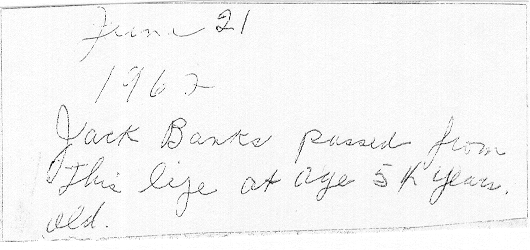 June 21
1962
Jack Banks passed from
this life at age 5½ years.
old.